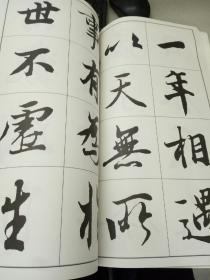 一年相遇
以天無所
事有
世不虛生